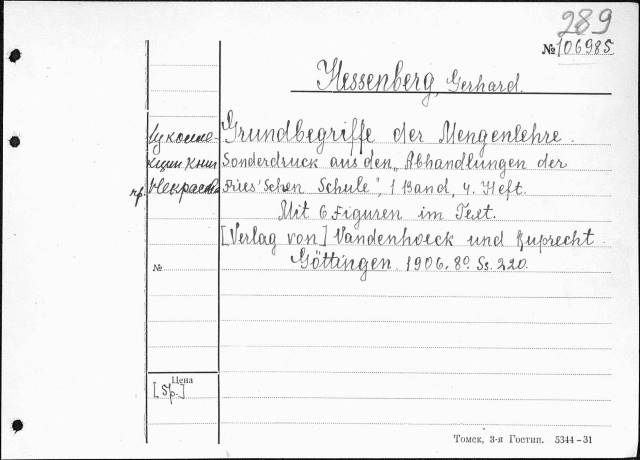 289
№ 106985
Hessenberg, Gerhard.
Из коллекции книг пр. Некрасова
Grundbegriffe der Mengenlehre.
Sonderdruck aus den „Abhandlungen der
Fries'schen Schule", 1 Band, 4. Heft.
Mit 6 Figuren im Text.
[Verlag von] Vandenhoeck und Ruprecht.
Göttingen. 1906. 8°. Ss. 220.
№
Цена
[5 р.]
Томск, 3-я Гостип. 5344-31